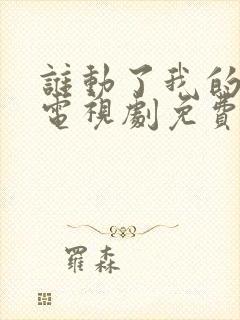 誰動了我的
電視劇免費
羅森